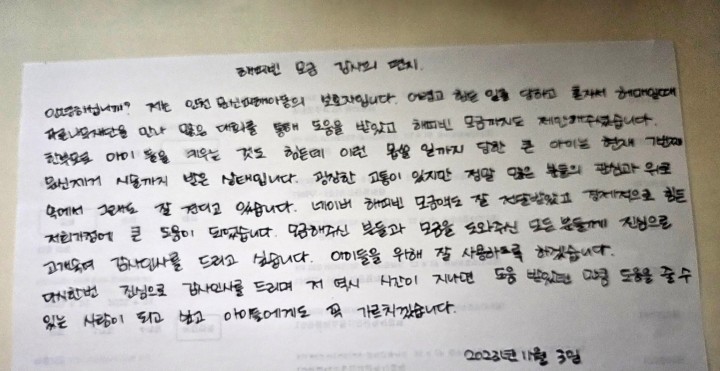 해피빈 모금 감사의 편지.
안녕하십니까? 저는 인천 문신피해아동의 보호자입니다. 어렵고 힘든 일을 당하고 혼자서 헤매일때
푸른나무재단을 만나 많은 대화를 통해 도움을 받았고 해피빈 모금까지도 제안해주셨습니다.
한부모로 아이 둘을 키우는 것도 힘든데 이런 몹쓸 일까지 당한 큰 아이는 현재 7번째
문신제거 시술까지 받은 상태입니다. 굉장한 고통이 있지만 정말 많은 분들의 관심과 위로
속에서 그래도 잘 견디고 있습니다. 네이버 해피빈 모금액도 잘 전달받았고 경제적으로 힘든
저희가정에 큰 도움이 되었습니다. 모금해주신 분들과 모금을 도와주신 모든 분들께 진심으로
고개숙여 감사인사를 드리고 싶습니다. 아이들을 위해 잘 사용하도록 하겠습니다.
다시한번 진심으로 감사인사를 드리며 저 역시 시간이 지나면 도움 받았던 만큼 도움을 줄 수
있는 사람이 되고 싶고 아이들에게도 꼭 가르치겠습니다.
2023년 11월 3일